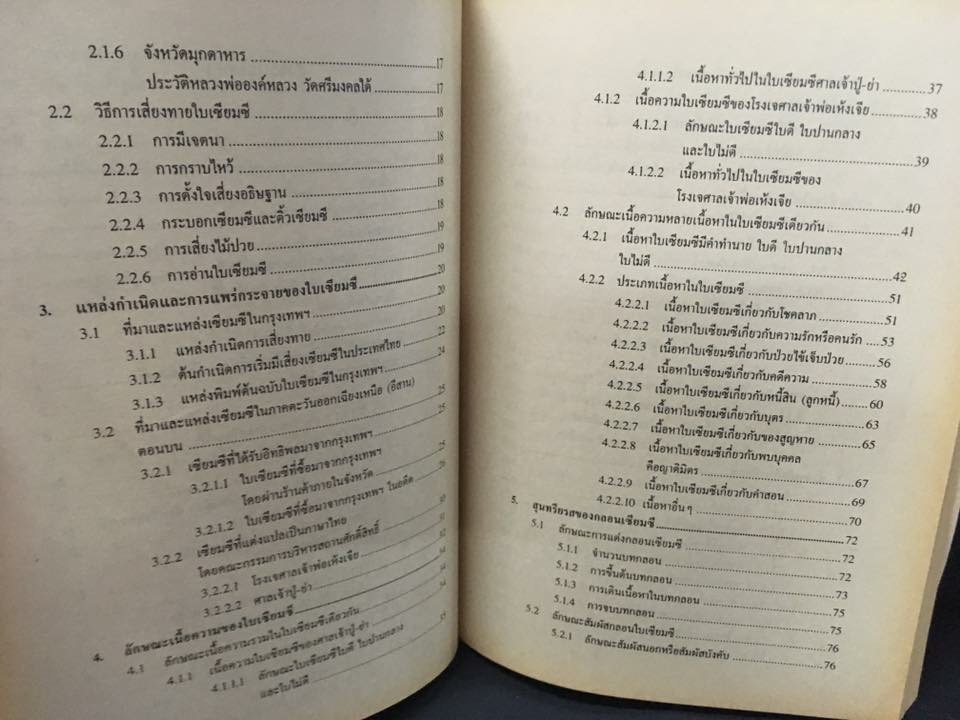 2.1.6 จังหวัดมุกดาหาร ..... 17
ประวัติหลวงพ่อองค์หลวง วัดศรีมงคลใต้ ..... 17
2.2 วิธีการเสี่ยงทายใบเซียมซี ..... 18
2.2.1 การมีเจตนา ..... 18
2.2.2 การกราบไหว้ ..... 18
2.2.3 การตั้งใจเสี่ยงอธิษฐาน ..... 18
2.2.4 กระบอกเซียมซีและติ้วเซียมซี ..... 18
2.2.5 การเสี่ยงไม้ปวย ..... 19
2.2.6 การอ่านใบเซียมซี ..... 19
3. แหล่งกำเนิดและการแพร่กระจายของใบเซียมซี ..... 20
3.1 ที่มาและแหล่งเซียมซีในกรุงเทพฯ ..... 20
3.1.1 แหล่งกำเนิดการเสี่ยงทาย ..... 20
3.1.2 ต้นกำเนิดการเริ่มมีเสี่ยงเซียมซีในประเทศไทย ..... 22
3.1.3 แหล่งพิมพ์ต้นฉบับใบเซียมซีในกรุงเทพฯ ..... 24
3.2 ที่มาและแหล่งเซียมซีในภาคตะวันออกเฉียงเหนือ (อีสาน)
ตอนบน ..... 25
3.2.1 เซียมซีที่ได้รับอิทธิพลมาจากกรุงเทพฯ ..... 25
3.2.1.1 ใบเซียมซีที่ซื้อมาจากกรุงเทพฯ
โดยผ่านร้านค้าภายในจังหวัด ..... 25
3.2.1.2 ใบเซียมซีที่ซื้อมาจากกรุงเทพฯ ในอดีต ..... 26
3.2.2 เซียมซีที่แต่งแปลเป็นภาษาไทย
โดยคณะกรรมการบริหารสถานศักดิ์สิทธิ์
3.2.2.1 โรงเจศาลเจ้าพ่อเห้งเจีย
3.2.2.2 ศาลเจ้าปู่-ย่า
4. ลักษณะเนื้อความของใบเซียมซี
4.1 ลักษณะเนื้อความรวมในใบเซียมซีเดียวกัน
4.1.1 เนื้อความใบเซียมซีของศาลเจ้าปู่-ย่า
4.1.1.1 ลักษณะใบเซียมซีใบดี ใบปานกลาง
และใบไม่ดี
4.1.1.2 เนื้อหาทั่วไปในใบเซียมซีศาลเจ้าปู่-ย่า ..... 37
4.1.2 เนื้อความใบเซียมซีของโรงเจศาลเจ้าพ่อเห้งเจีย ..... 38
4.1.2.1 ลักษณะใบเซียมซีใบดี ใบปานกลาง
และใบไม่ดี ..... 39
4.1.2.2 เนื้อหาทั่วไปในใบเซียมซีของ
โรงเจศาลเจ้าพ่อเห้งเจีย ..... 40
4.2 ลักษณะเนื้อความหลายเนื้อหาในใบเซียมซีเดียวกัน ..... 41
4.2.1 เนื้อหาใบเซียมซีมีคำทำนาย ใบดี ใบปานกลาง
ใบไม่ดี ..... 42
4.2.2 ประเภทเนื้อหาในใบเซียมซี ..... 51
4.2.2.1 เนื้อหาใบเซียมซีเกี่ยวกับโชคลาภ ..... 51
4.2.2.2 เนื้อหาใบเซียมซีเกี่ยวกับความรักหรือคนรัก ..... 53
4.2.2.3 เนื้อหาใบเซียมซีเกี่ยวกับป่วยไข้เจ็บป่วย ..... 56
4.2.2.4 เนื้อหาใบเซียมซีเกี่ยวกับคดีความ ..... 58
4.2.2.5 เนื้อหาใบเซียมซีเกี่ยวกับหนี้สิน (ลูกหนี้) ..... 60
4.2.2.6 เนื้อหาใบเซียมซีเกี่ยวกับบุตร ..... 63
4.2.2.7 เนื้อหาใบเซียมซีเกี่ยวกับของสูญหาย ..... 65
4.2.2.8 เนื้อหาใบเซียมซีเกี่ยวกับพบบุคคล
คือญาติมิตร ..... 67
4.2.2.9 เนื้อหาใบเซียมซีเกี่ยวกับคำสอน ..... 69
4.2.2.10 เนื้อหาอื่นๆ ..... 70
5. สุนทรียรสของกลอนเซียมซี ..... 72
5.1 ลักษณะการแต่งกลอนเซียมซี ..... 72
5.1.1 จำนวนบทกลอน ..... 72
5.1.2 การขึ้นต้นบทกลอน ..... 73
5.1.3 การเดินเนื้อหาในบทกลอน ..... 75
5.1.4 การจบบทกลอน ..... 75
5.2 ลักษณะสัมผัสกลอนใบเซียมซี ..... 76
5.2.1 ลักษณะสัมผัสนอกหรือสัมผัสบังคับ ..... 76